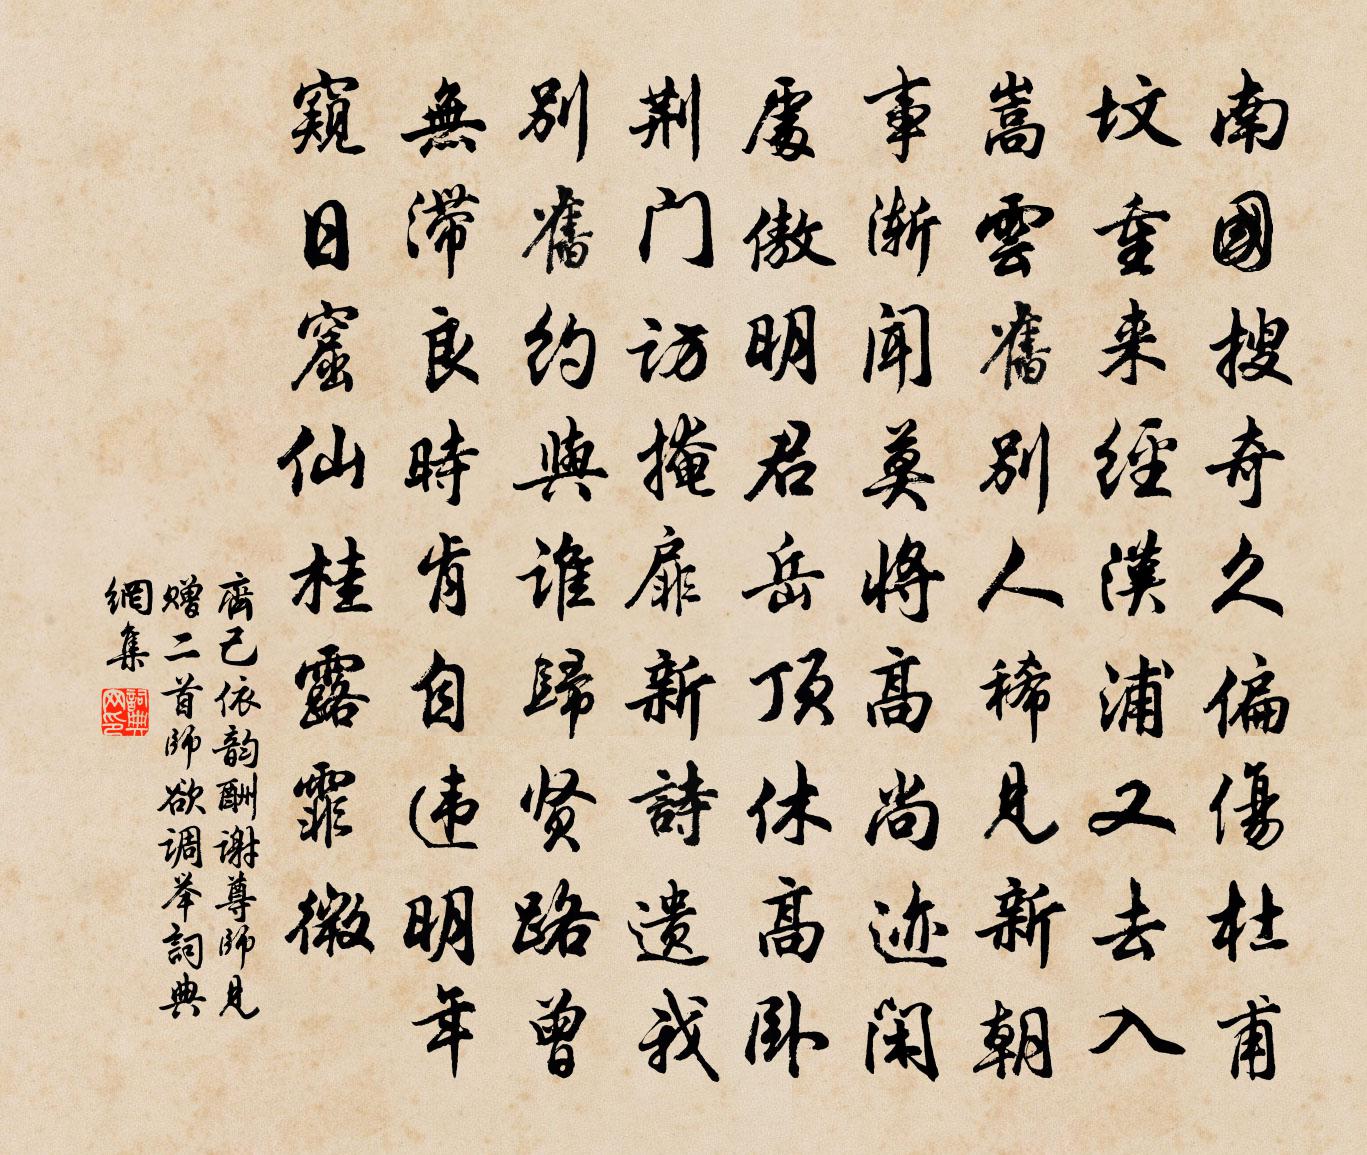 南國搜奇久偏傷杜甫
坟重来經漢浦又去入
嵩雲舊別人稀見新朝
事渐闻莫將高尚迹閑
處傲明君岳頂休高卧
荆门访掩扉新詩遗我
別舊约與谁歸贤路曾
無滞良時肯自违明年
窺日窟仙桂露霏微
齊己依韵酬谢尊師見
赠二首師欲调举詞典
網集